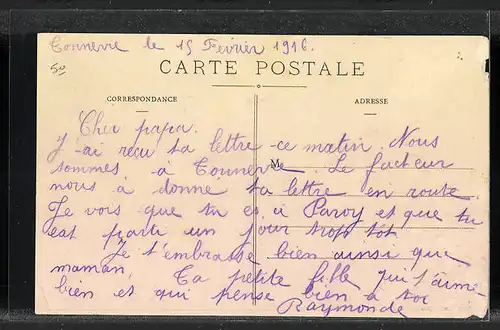 Tonnerre le 15 Février 1916.
50
CARTE POSTALE
CORRESPONDANCE
ADRESSE
Cher papa.
J'-ai reçu ta lettre ce matin. Nous
sommes à Tonnerre. Le facteur
M
nous à donne ta lettre en route.
Je vois que tu es à Paroy et que tu
est parti un jour trop tôt.
Je t'embrasse bien ainsi que
maman. Ta petite fille qui t'aime
bien et qui pense bien à toi
Raymonde